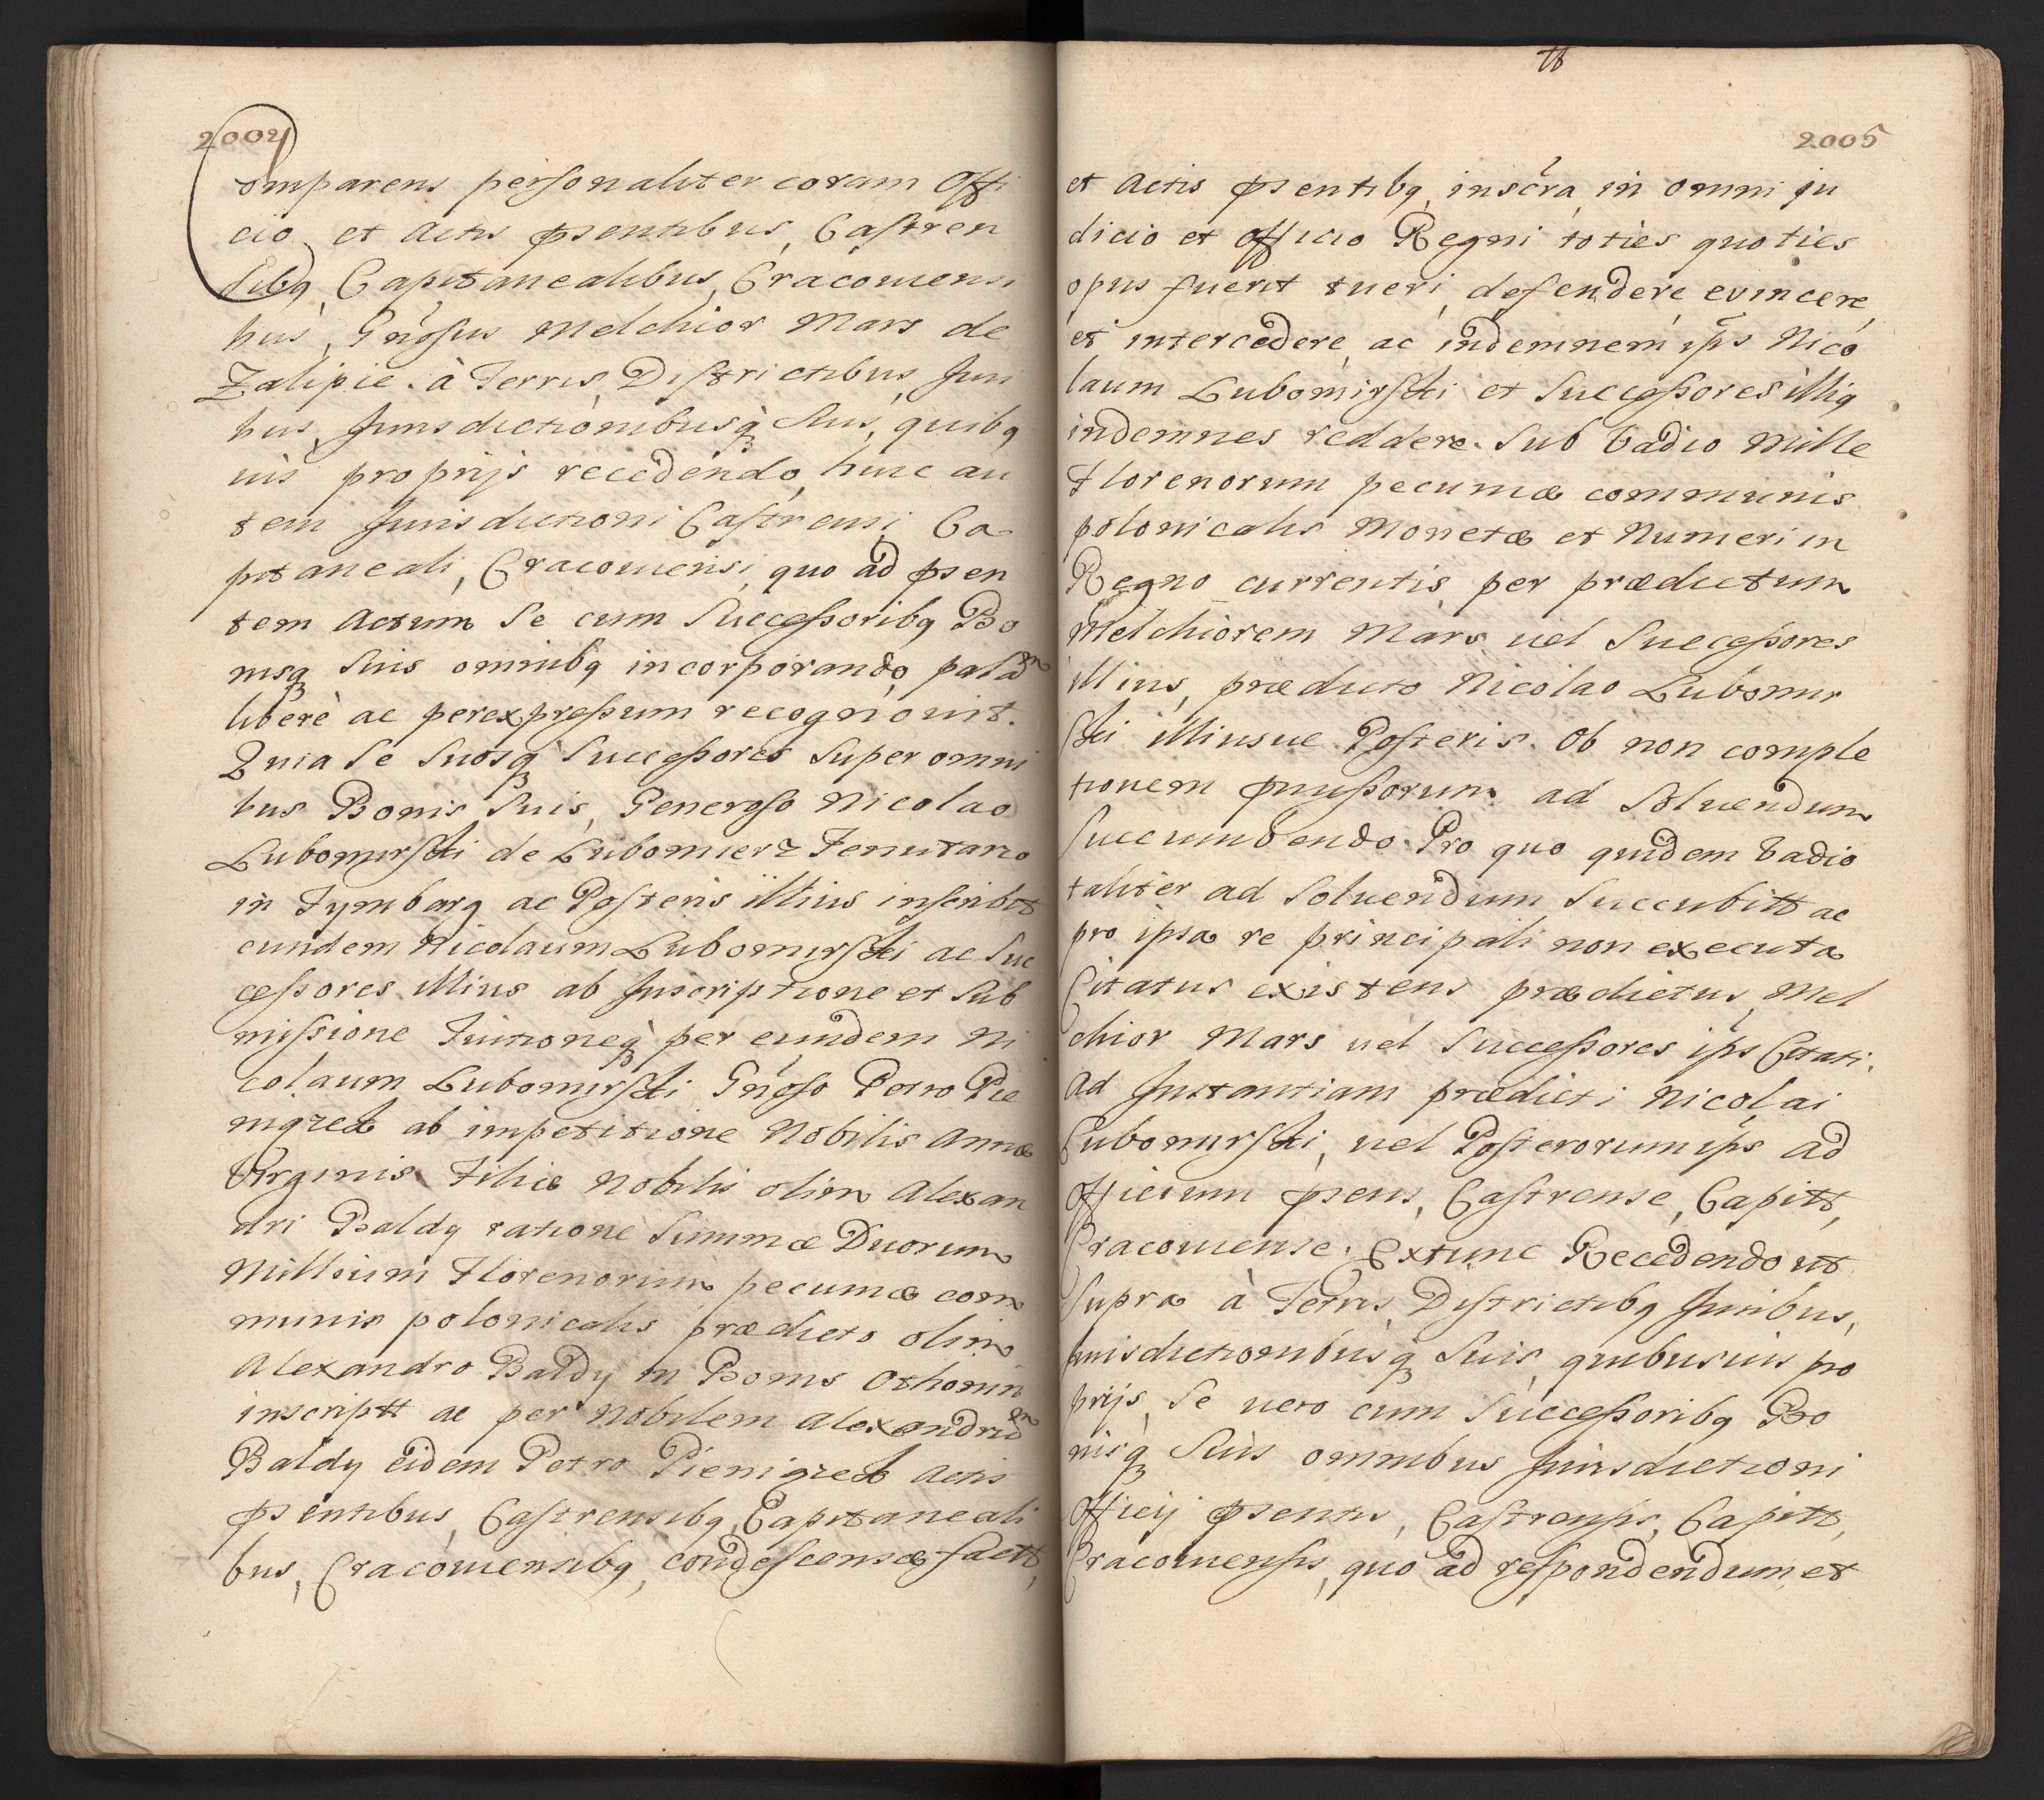 2004
Comparens personaliter coram Offi
cio et Actis pſentibus, Caſtren
ſibq, Capitanealibus, Cracouiensi
bus, Gnoſus Melchior Mars de
Zalipie. à Terris, Diſtrictibus, Juri
bus, Jurisdictionibusq̀ suis, quibq
uis proprijs recedendo, huic au
tem Jurisdictioni Caſtrensi, Ca
pitaneali, Cracouiensi, quo ad pſen
tem Actum Se cum Succeſsoribq Bo
nisq Suis omnibq incorporando, palam
liberè ac per expreſsum recognouit.
Quia Se Suosq Succeſsores Super omni
bus Bonis Suis, Generoſo Nicolao
Lubomirſki de Lubomierz Tenutario
in Tymbarg ac Poſteris illius inſcribit
eundem Nicolaum Lubomirſki ac Suc
ceſsores illius ab Inscriptione et Sub
miſsione Tuitioneq̀ per eundem Ni
colaum Lubomirſki Gnoſo Petro Pie
nigzek ab impetitione Nobilis Annæ
Virginis Filiæ Nobilis olim Alexan
dri Baldy ratione Summæ Duorum
Millium Florenorum pecuniæ com
munis polonicalis prædicto olim
Alexandro Baldy in Bonis Othomin
inscriptt ac per Nobilem Alexandrum
Baldy eidem Petro Pienigzek Actis
pſentibus, Caſtrensibq, Capitaneali
bus, Cracouiensibq, condeſcensæ factt,
2005
et Actis pſentibq, inscra, in omni ju
dicio et officio Regni toties quoties
opus fuerit tueri, defendere, evincere,
et intercedere, ac indemnem ips Nico
laum Lubomirſki et Succeſsores illiq
indemnes reddere. Sub Vadio Mille
Florenorum pecuniæ communis
polonicalis Monetæ et Numeri in
Regno currentis, per prædictum
Melchiorem Mars uel Succeſsores
illius, prædicto Nicolao Lubomir
ſki illiusue Poſteris. Ob non comple
tionem pmiſsorum ad Soluendum
Succumbendo. Pro quo quidem Vadio
taliter ad Soluendum Succubitt ac
pro ipsa re principali non executa
Citatus existens prædictus Mel
chior Mars uel Succeſsores ips Citati.
Ad Instantiam prædicti Nicolai
Lubomirſki, uel Poſterorum ips ad
Officium pſens, Caſtrense, Capitt,
Cracouiense. Extunc Recedendo ut
Supra à Terris, Diſtrictibq Juribus,
Jurisdictionibusq Suis, quibusuis pro
prijs, Se uero cum Succeſsoribq Bo
nisq̀ Suis omnibus Jurisdictioni
Officij pſentis, Caſtrensis, Capitt,
Cracouiensis, quo ad reſpondendum, et